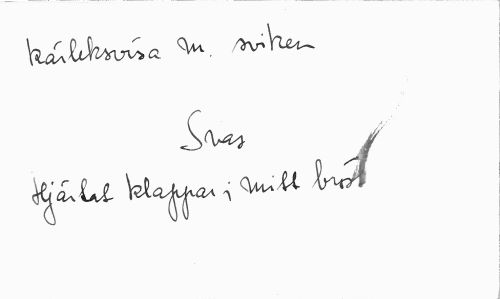 kärleksvisa m. sviken
Svas
Hjärtat klappar i mitt bröst